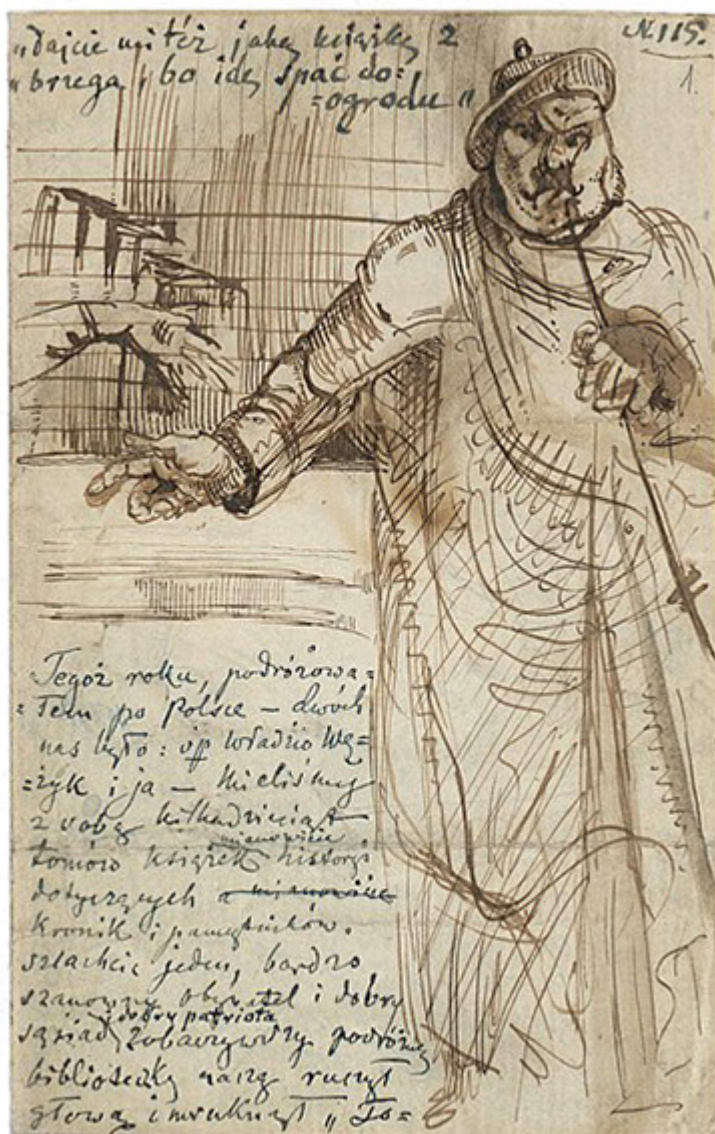 „Dajcie mi też jaką książkę z
„brzega, bo idę spać do=
=ogrodu"
N. 115.
1.
Tegoż roku, podróżowa=
=łem po Polsce – dwóch
nas było: śp Władzio Wę=
=żyk i ja – Mieliśmy
z sobą kilkadziesiąt
mianowicie
tomów książek historyi
dotyczących a mianowicie
Kronik i pamiętników.
szlachcic jeden, bardzo
szanowny obywatel i dobry
i dobry patriota
sąsiad, zobaczywszy podróżną
biblioteczkę naszą ruszył
głową i mruknął „To=